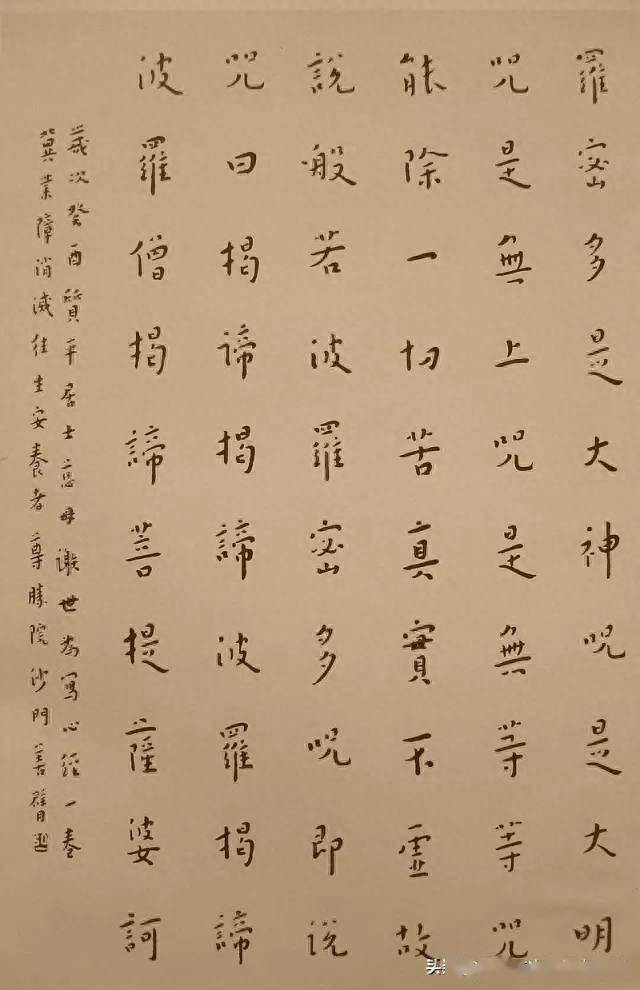 羅密多是大神咒是大明
咒是無上咒是無等等咒
能除一切苦真實不虛故
說般若波羅密多咒即說
咒曰揭諦揭諦波羅揭諦
波羅僧揭諦菩提薩婆訶
歲次癸酉質平居士慈母謝世為寫心經一卷
冀業障消滅往生安養者尊勝院沙門善